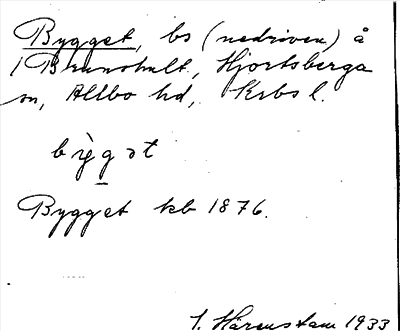 Bygget, bs (nedriven) å
/ Brunshult, Hjortsberga
sn, Allbo hd, Krbs l.
bỳgət
Bygget kb 1876.
I. Härenstam 1933